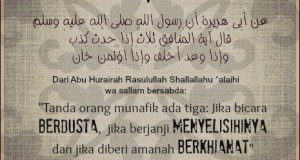 عن أبي هريرة أن رسول الله صلى الله عليه وسلم
قال آية المنافق ثلاث إذا حدث كذب
وإذا وعد أخلف وإذا اؤتمن خان
Dari Abu Hurairah Rasulullah Shallallahu 'alaihi
wa sallam bersabda:
"Tanda orang munafik ada tiga: Jika bicara
BERDUSTA, jika berjanji MENYELISIHINYA
dan jika diberi amanah BERKHIANAT"